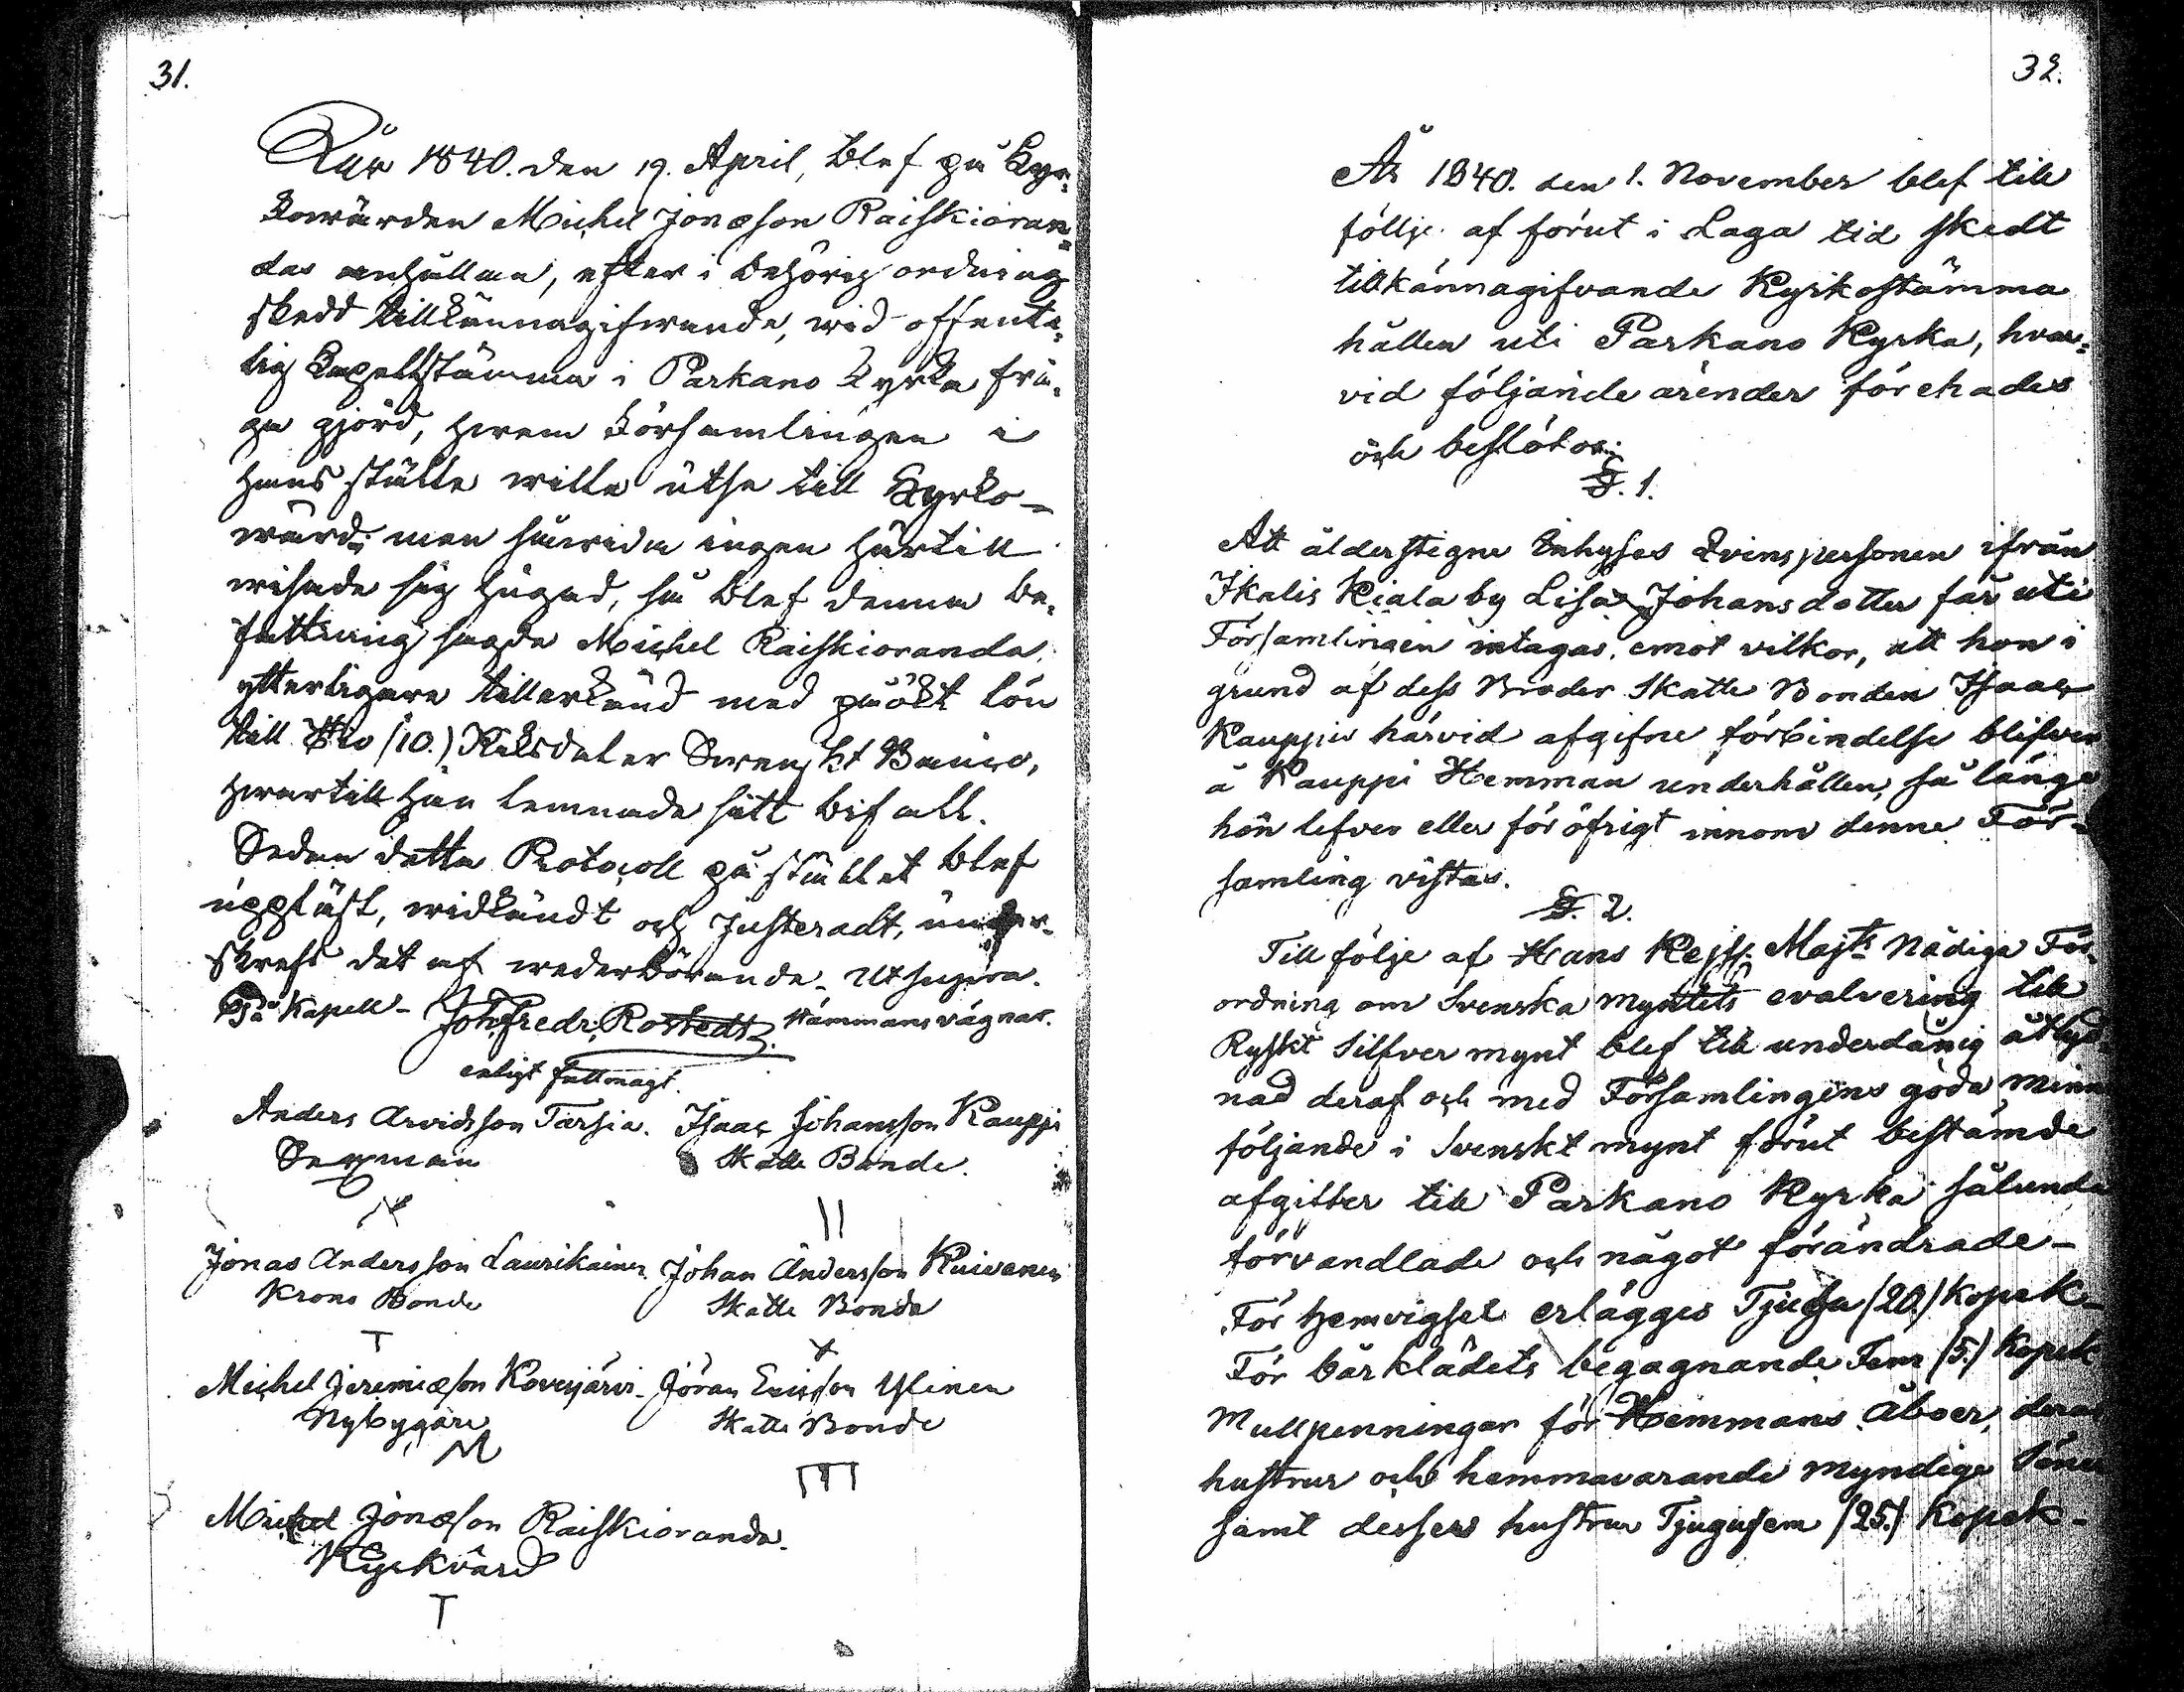 31.
Åhr 1840. den 19. April, blef på Kyr-
kowärden Michel Jonæson Raiskioran-
das anhållan, efter i behörig ordning
skedd tillkännagifwande, wid offent-
lig Capellstämma i Parkano Kyrka frå-
ga gjörd, hwem Församlingen i
hans ställe wille utse till Kyrko-
wärd; men såwida ingen härtill
wisade sig hugad, så blef denna be-
fattning sagde Michel Raiskioranda
ytterligare tillerkänd med påökt lön
till Tio (10.) Riksdaler Swenskt Banco,
hwartill han lemnade sitt bifall.
Sedan detta Protocoll på stället blef
uppläst, widkändt och Justeradt, under-
skrefs det af wederbörande. Ut supra.
På Kapell-
Joh. Fredr. Rostedt.
Stämmans vägnar.
enligt fullmagt.
Anders Arvidsson Tarsia. Isaac Johansson Kauppi
Sexman Skatte Bonde.
Jonas Andersson Laurikainen. Johan Andersson Kuivanen
Krono Bonde Skatte Bonde
Michel Jeremiæson Kovesjärvi. Jöran Ericsson Ylinen
Nybygare Skatte Bonde
M
Michel Jonæson Raiskioranda.
Kyrkvärd
T
32.
År 1840. den 1. November blef till
föllje af förut i Laga tid skedt
tillkännagifvande Kyrkostämma
hållen uti Parkano Kyrka, hvar-
vid följande ärender förehades
och beslötos;
§. 1.
Att ålderstigne Inhyses Qvinspersonen ifrån
Ikalis Kiala by Lisa Johansdotter får uti
Församlingen intagas, emot vilkor, att hon i
grund af dess Broder Skatte Bonden Isaac
Kauppis härvid afgifne förbindelse blifver
å Kauppi Hemman underhållen, så länge
hon lefver eller för öfrigt innom denne För-
samling vistas.
§. 2.
Till följe af Hans Kejs. Majts Nådiga För-
ordning om Svenska myntets evalvering till
Ryskt Silfver mynt blef till underdånig åtlyd-
nad deraf och med Församlingens goda minne
följande i Svenskt mynt förut bestämde
afgifter till Parkano Kyrka sålunda
förvandlade och något förändrade-
För hemvigsel erlägges Tjugu (20.) Kopek-
För bårklädets begagnande Fem (5.) Kopek
Mullpenningar för Hemmans Åboer, deras
hustrur och hemmavarande myndige Söner
samt dessers hustrur Tjugufem (25.) Kopek-